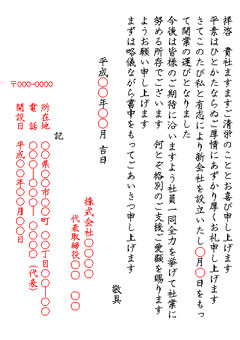 拝啓 貴社ますますご清栄のこととお喜び申し上げます
平素はひとかたならぬご厚情にあずかり厚くお礼申し上げます
さてこのたび私と有志により新会社を設立いたし〇月〇日をもっ
て開業の運びとなりました
今後は皆様のご期待に沿いますよう社員一同全力を挙げて社業に
努める所存でございます 何とぞ格別のご支援ご愛顧を賜ります
ようお願い申し上げます
まずは略儀ながら書中をもってごあいさつ申し上げます
敬具
平成〇〇年〇〇月 吉日
株式会社〇〇〇〇
代表取締役〇〇 〇〇
記
〒000-0000
所在地 〇〇県〇〇市〇〇町 〇〇丁目〇〇―〇〇
電話 〇〇〇―〇〇〇―〇〇〇〇(代表)
開設日 平成〇〇年〇〇月〇〇日